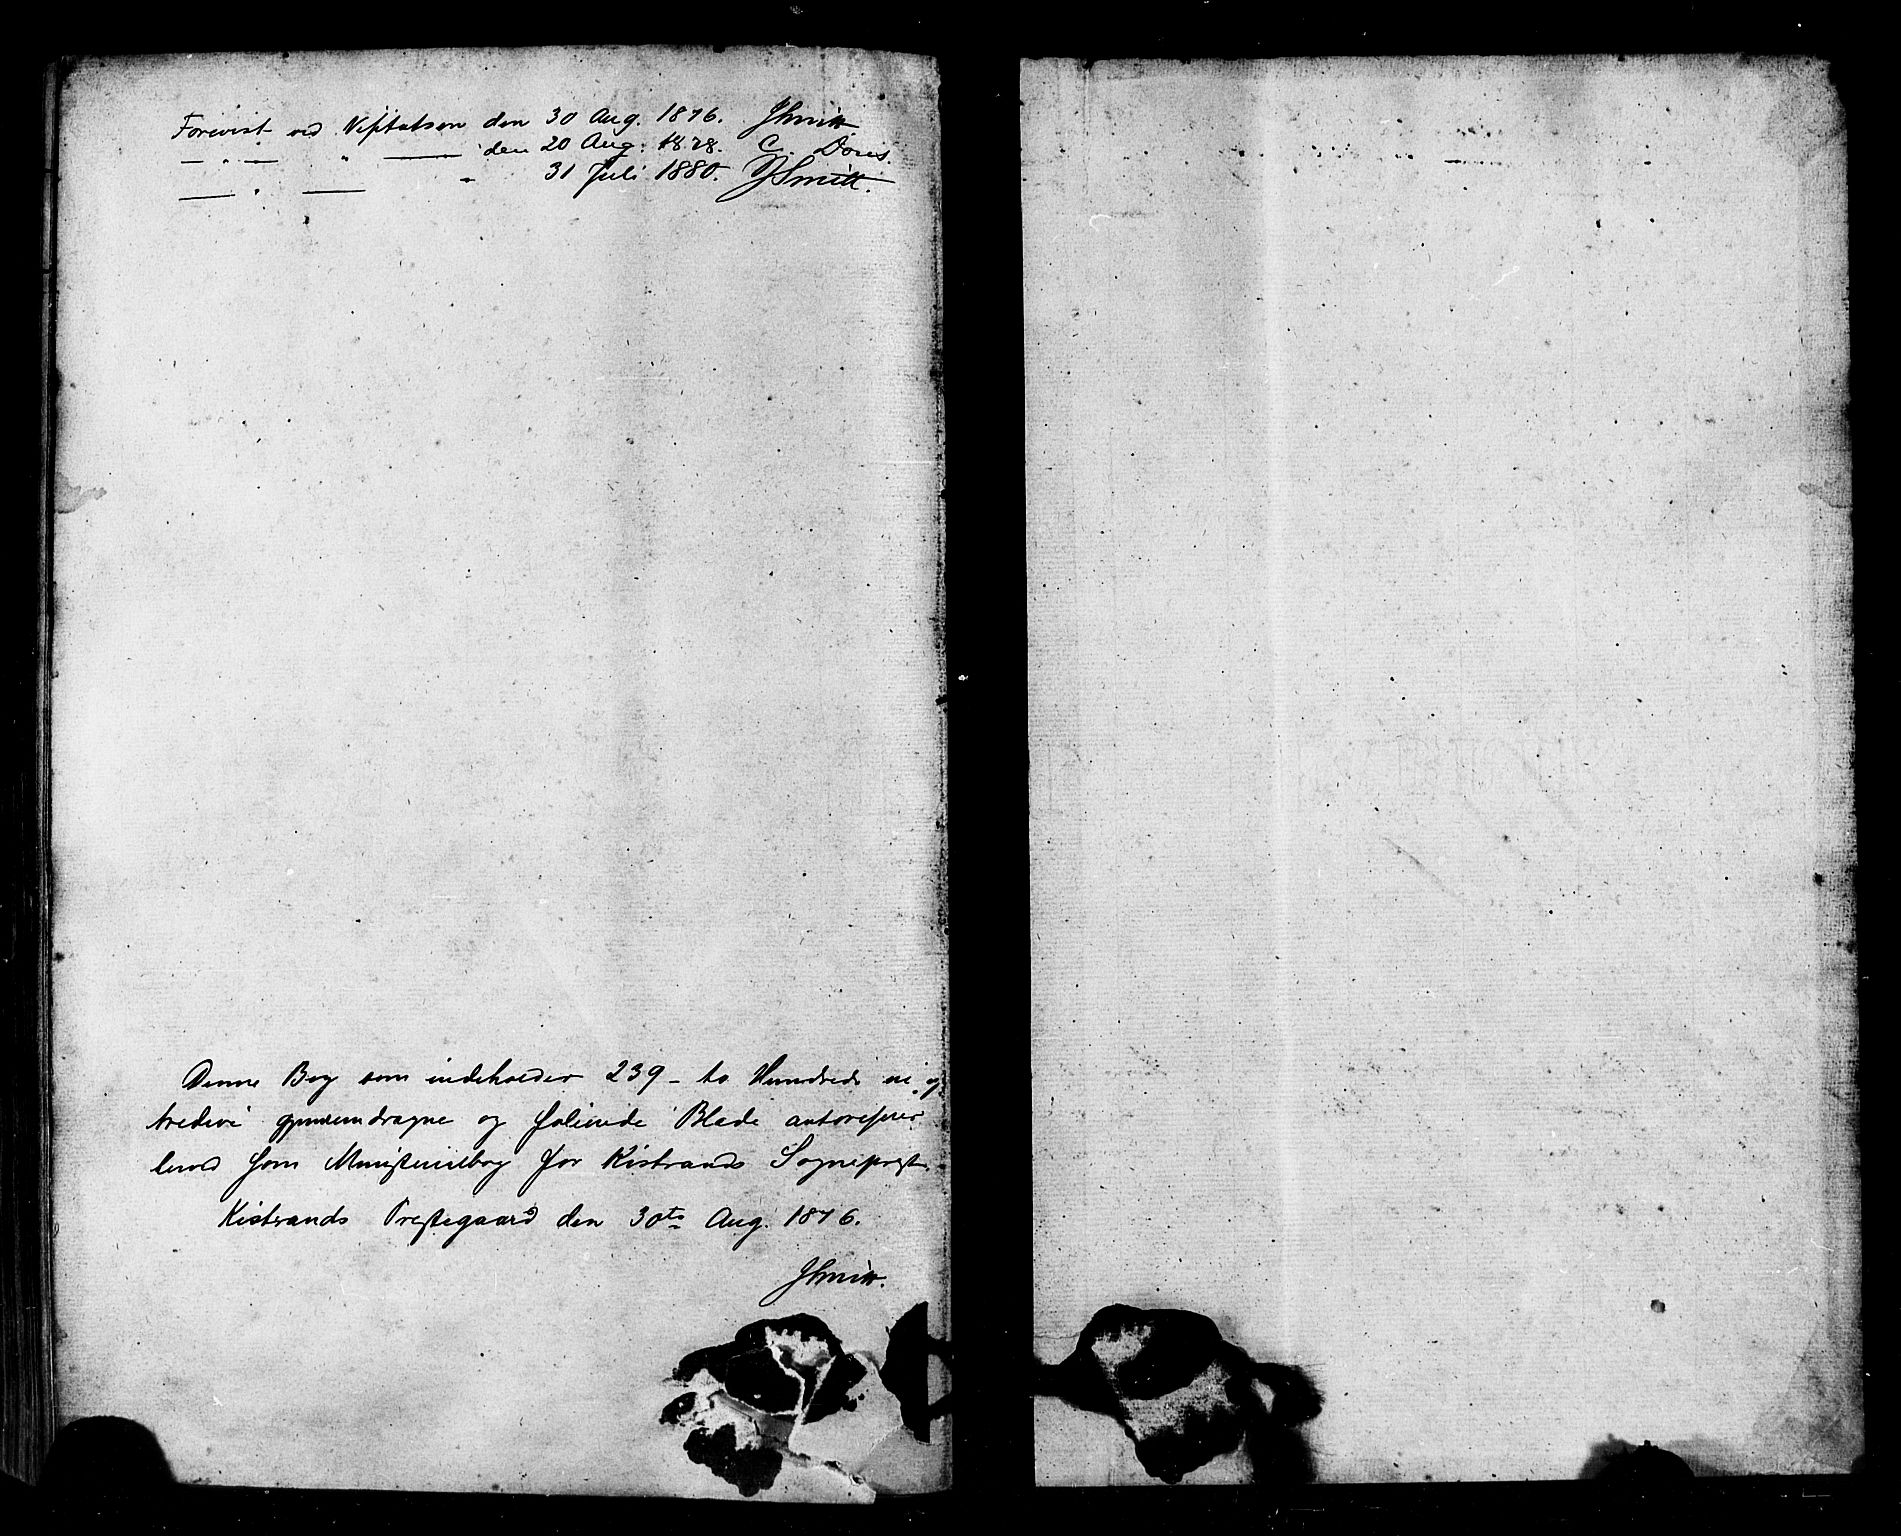 Forevist ved Visitatsen den 30 Aug. 1876. JSmitt
— " — " — den 20 Aug. 1878. C. Dons.
— " — " 31 Juli 1880. JSmitt.
Denne Bog som indeholder 239 - to Hundrede ni og
tredive gjennemdragne og folierede Blade autoriseres
herved som Ministerialbog for Kistrands Sogneprest.
Kistrands Prestegaard den 30te Aug. 1876.
JSmitt.